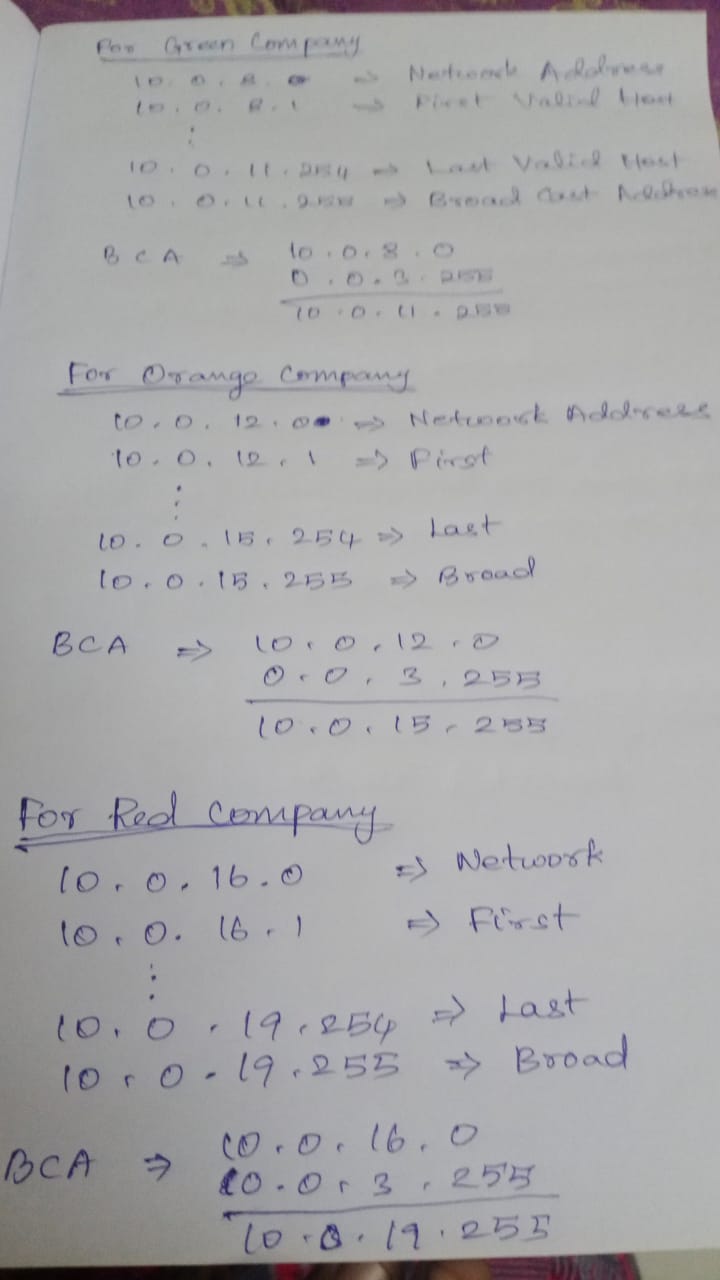 For Green Company
10.0.8.0 => Network Address
10.0.8.1 => First Valid Host
:
10.0.11.254 => Last Valid Host
10.0.11.255 => Broad Cast Address
BCA => 10.0.8.0
0.0.3.255
10.0.11.255
For Orange Company
10.0.12.0 => Network Address
10.0.12.1 => First
:
10.0.15.254 => Last
10.0.15.255 => Broad
BCA => 10.0.12.0
0.0.3.255
10.0.15.255
For Red Company
10.0.16.0 => Network
10.0.16.1 => First
:
10.0.19.254 => Last
10.0.19.255 => Broad
BCA => 10.0.16.0
10.0.3.255
10.0.19.255